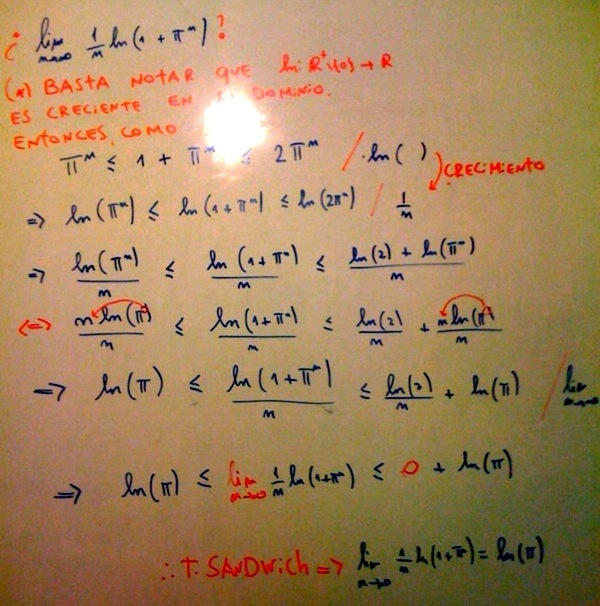 ¿ lim n→∞ 1/n ln(1 + π^n)?
(*) BASTA NOTAR QUE ln: R⁺\{0} → R
ES CRECIENTE EN DOMINIO.
ENTONCES, COMO
π^n ≤ 1 + π^n ≤ 2π^n / ·ln( )
CRECIMIENTO
=> ln(π^n) ≤ ln(1+π^n) ≤ ln(2π^n) / 1/n
=> ln(π^n)/n ≤ ln(1+π^n)/n ≤ ln(2) + ln(π^n)/n
<=> n ln(π)/n ≤ ln(1+π^n)/n ≤ ln(2)/n + n ln(π)/n
=> ln(π) ≤ ln(1+π^n)/n ≤ ln(2)/n + ln(π) / lim n→∞
=> ln(π) ≤ lim n→∞ 1/n ln(1+π^n) ≤ 0 + ln(π)
∴ T. SANDWICH => lim n→∞ 1/n ln(1+π^n) = ln(π)